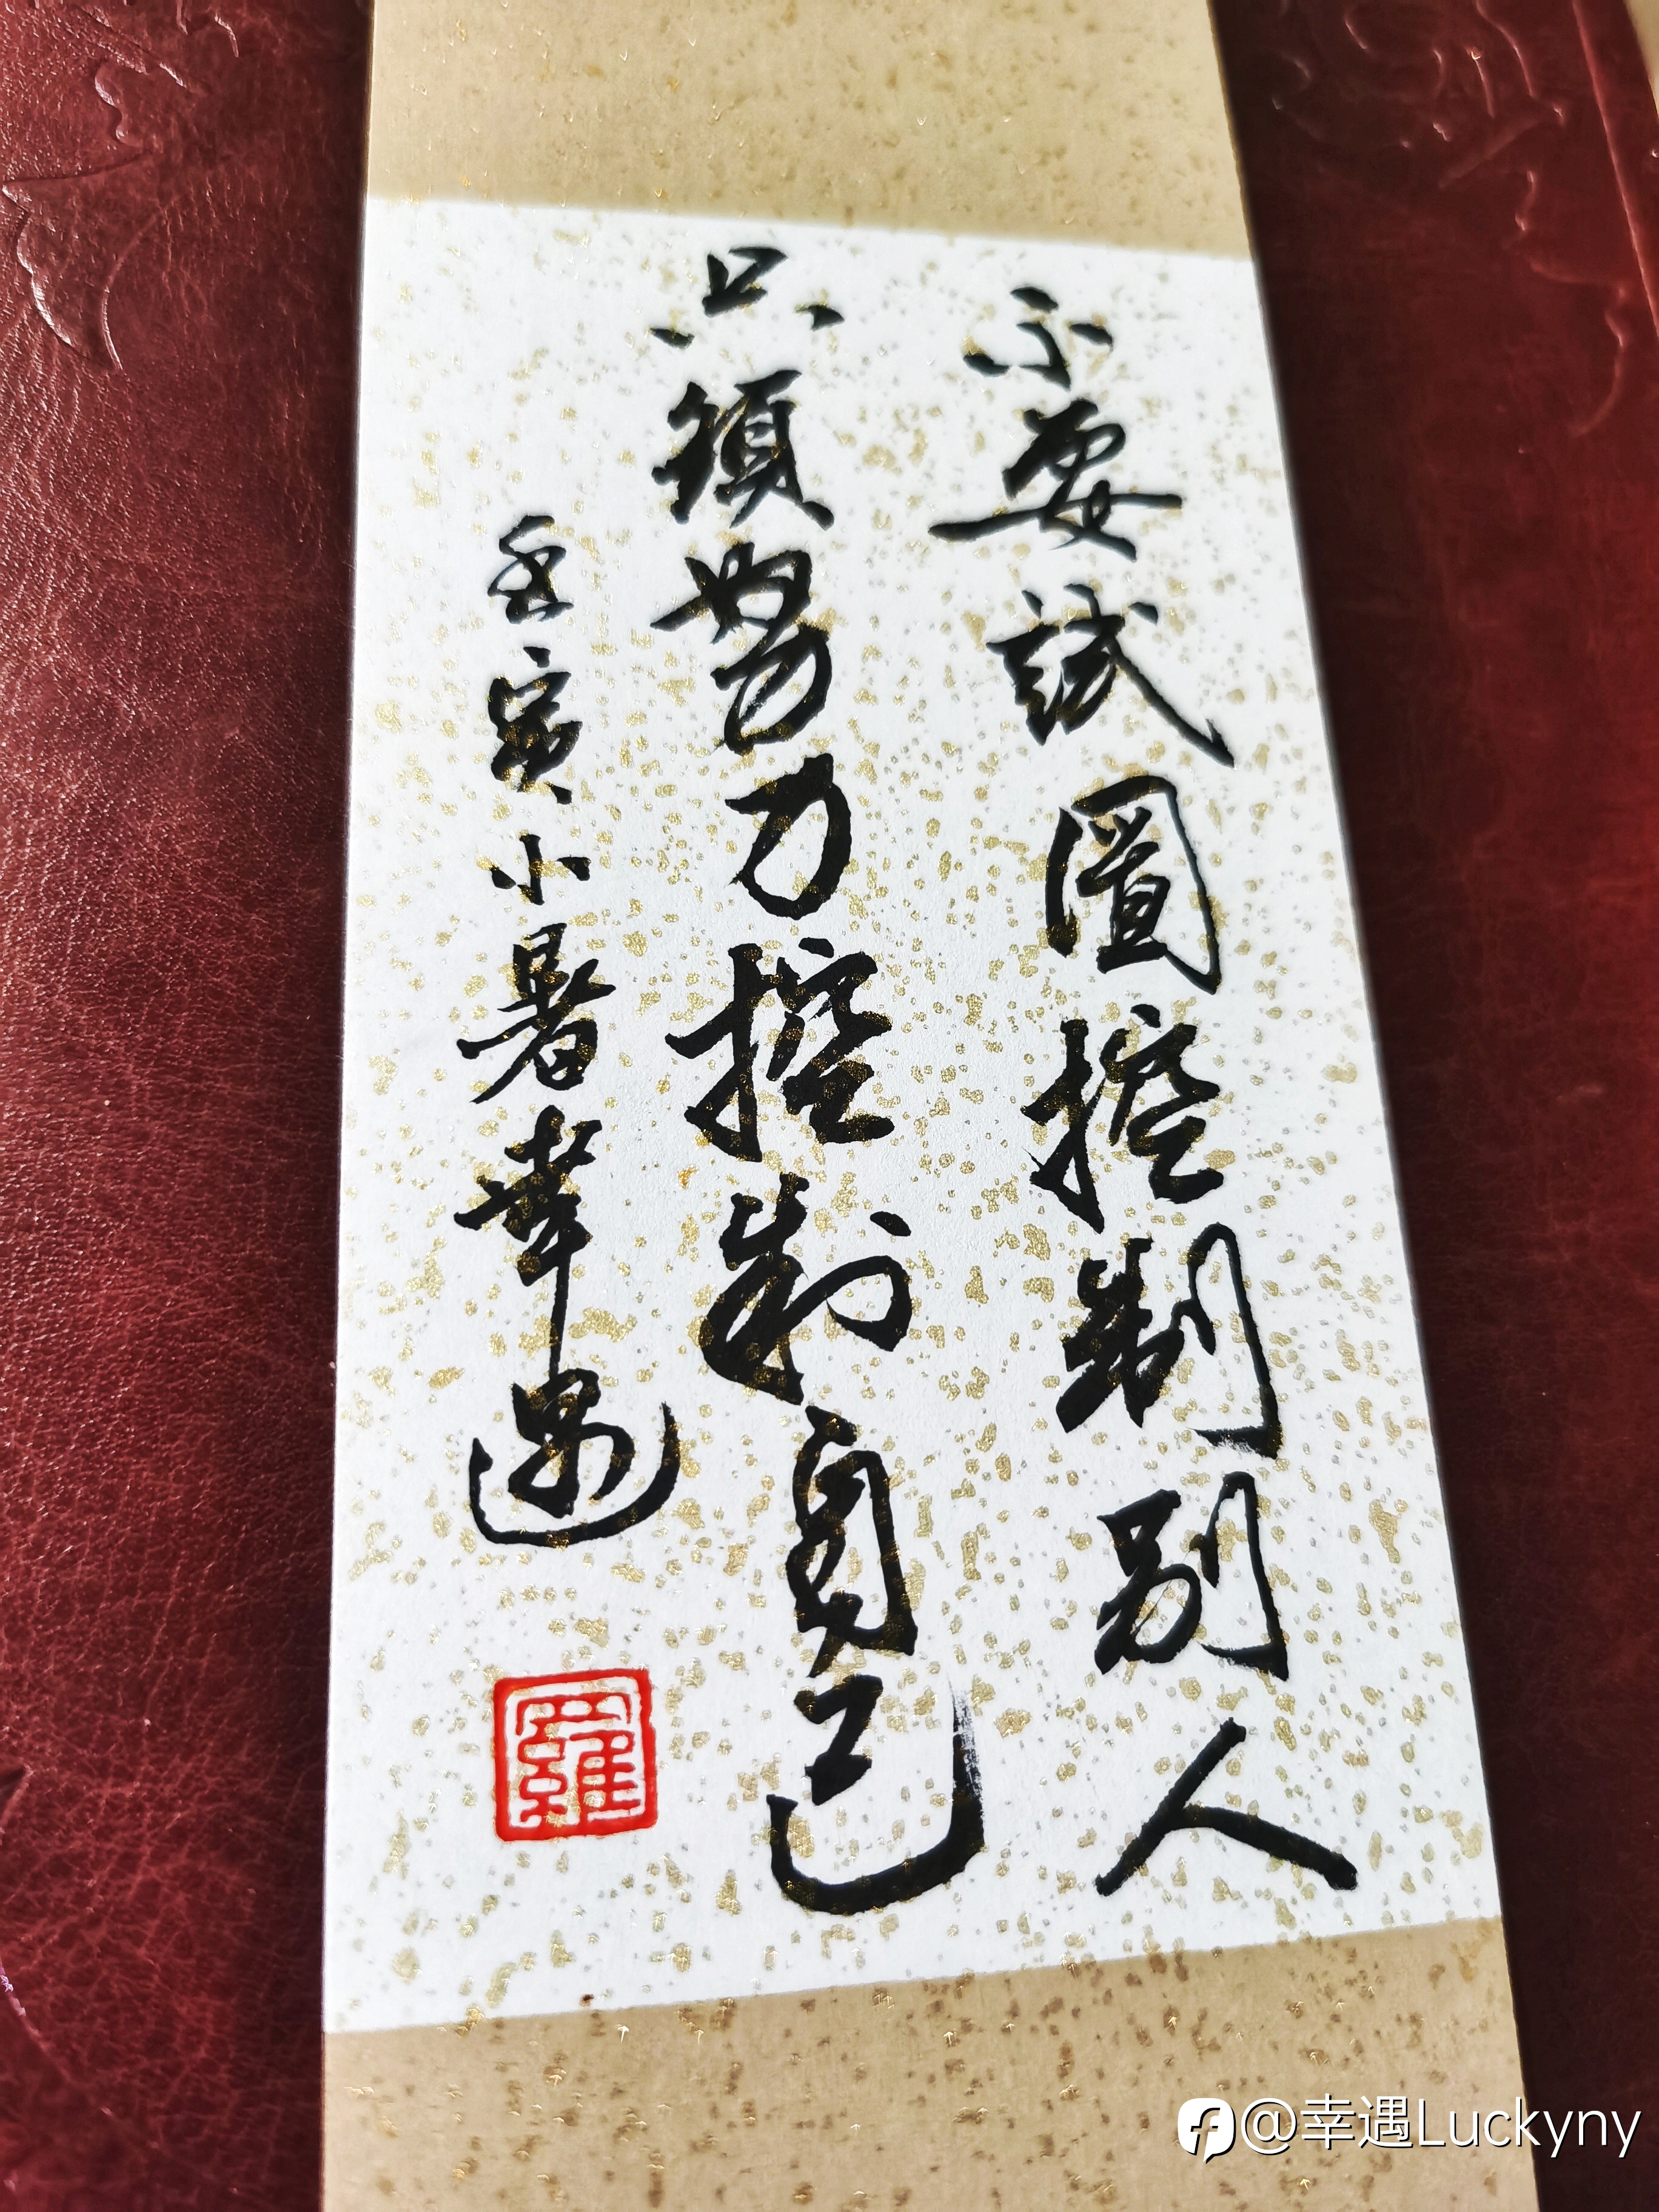 不要試圖控制别人
只須努力控制自己
壬寅小暑幸遇
羅
@幸遇Luckyny